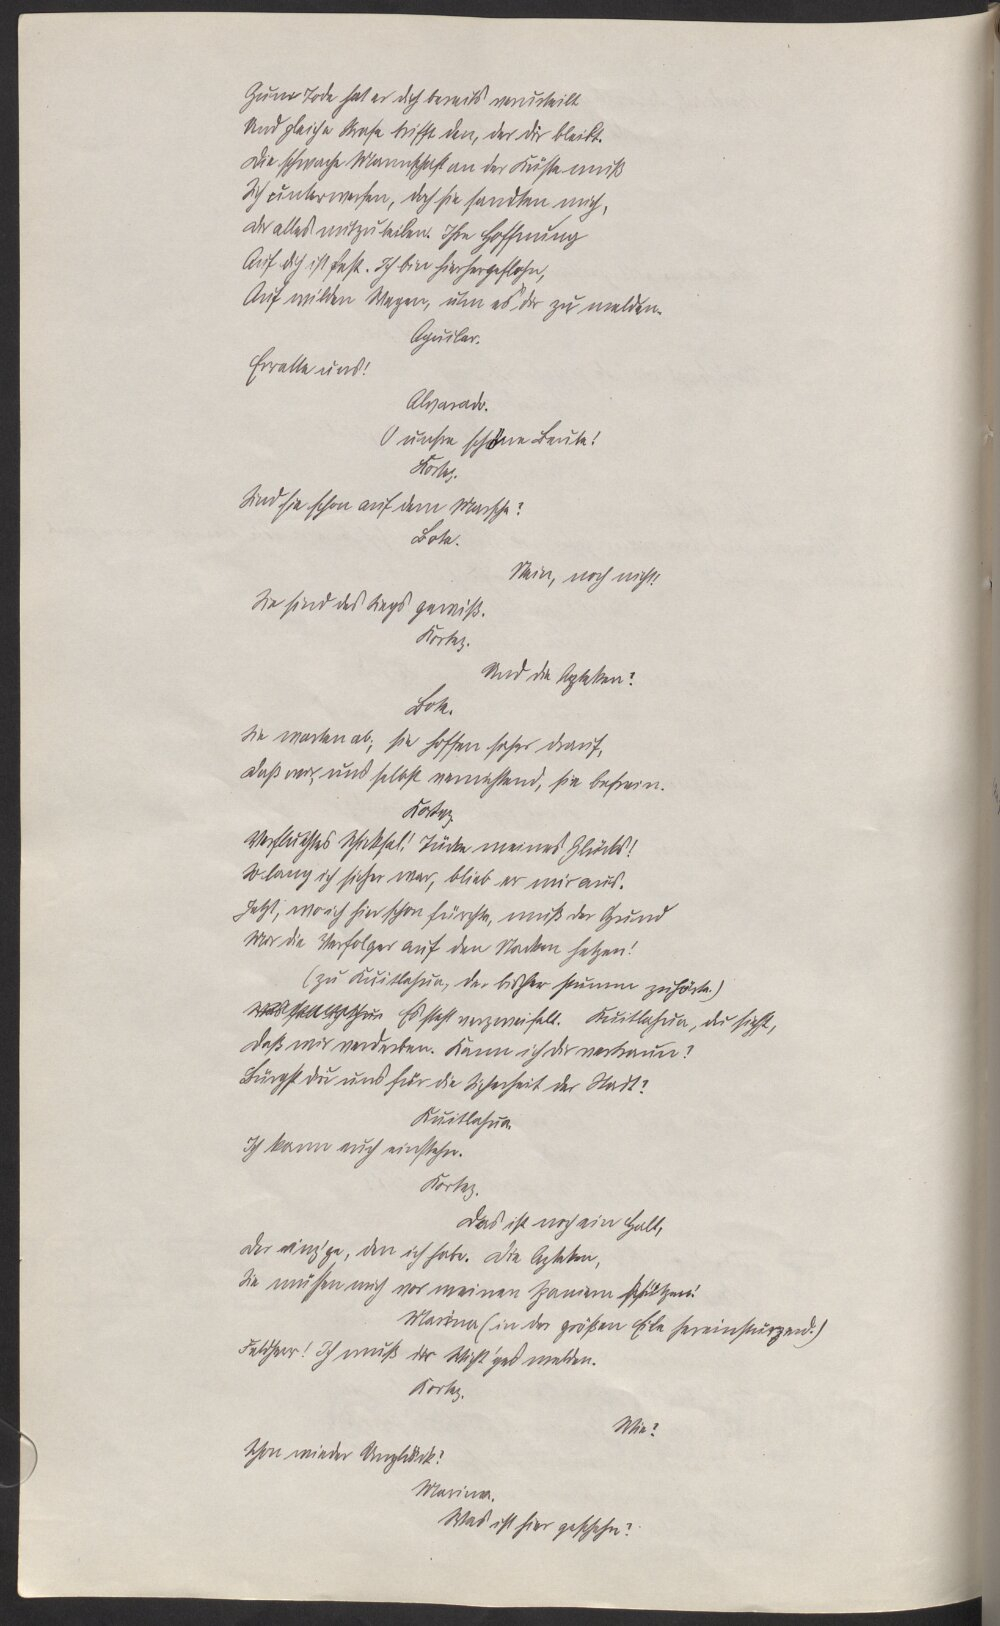 Zum Tode hat er dich bereits verurteilt
Und gleiche Strafe trifft den, der dir bleibt.
Die schwache Mannschaft an der Küste muß
Sich unterwerfen, doch sie sandten mich,
Dir alles mitzuteilen. Ihre Hoffnung
Auf dich ist fest. Ich bin hierhergeflohn,
Auf wilden Wegen, um es dir zu melden.
Aguilar.
Errette uns!
Alvarado.
O unsre schöne Beute!
Kortez.
Sind sie schon auf dem Marsche?
Bote.
Nein, noch nicht!
Sie sind des Siegs gewiß.
Kortez.
Und die Azteken?
Bote.
Sie warten ab; sie hoffen sicher drauf,
Daß wir, uns selbst vernichtend, sie befrein.
Kortez
Verfluchtes Schicksal! Tücke meines Glücks!
So lang ich sicher war, blieb er mir aus.
Jetzt, wo ich hier schon fürchte, muß der Hund
Mir die Verfolger auf den Nacken hetzen!
(zu Kuitlahua, der bisher stumm zuhörte.)
Es steht verzweifelt. Kuitlahua, du siehst,
Daß wir verderben. Kann ich dir vertraun?
Bürgst du uns für die Sicherheit der Stadt?
Kuitlahua.
Ich kann euch einstehn.
Kortez.
Das ist noch ein Halt,
Der einz'ge, den ich habe. Die Azteken,
Sie müssen mich vor meinen Spaniern schützen!
Marina (in der größten Eile hereinstürzend.)
Feldherr! Ich muß dir Wicht'ges melden.
Kortez.
Wie?
Schon wieder Unglück?
Marina.
Was ist hier geschehn?